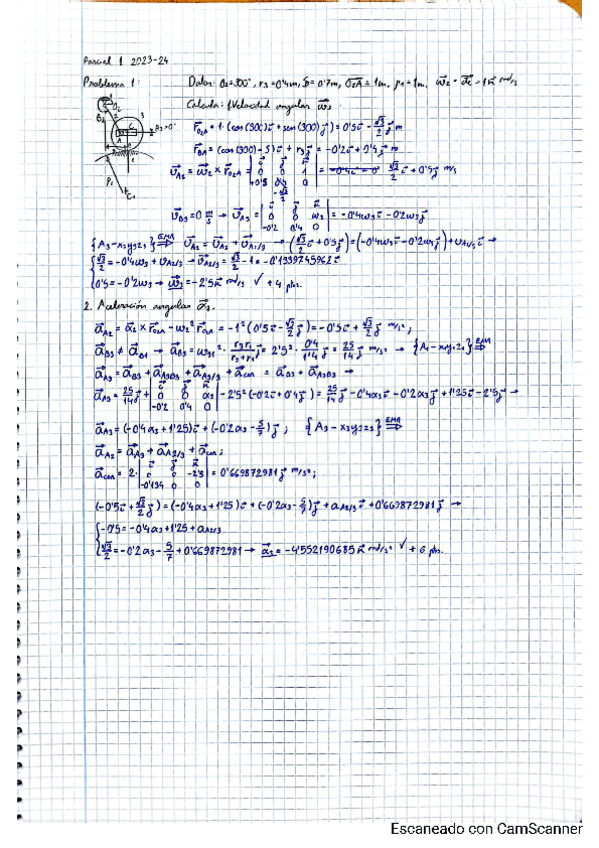 Parcial 1 2023-24
Problema 1: Datos: θ₂=300°, r₃=0'4m, S=0'7m, O₂A=1m, ρ₁=1m, ω₂=α₂=1k rad/s
Calcula: 1 Velocidad angular ω₃
r_O₂A = 1·(cos(300)i + sen(300)j) = 0'5i - √3/2 j m
r_BA = (cos(300)-S)i + r₃j = -0'2i + 0'4j m
v_A2 = ω₂ × r_O₂A = | i j k ; 0 0 1 ; +0'5 -√3/2 0 | = √3/2 i + 0'5j m/s
v_B3 = 0 m/s → v_A3 = | i j k ; 0 0 ω₃ ; -0'2 0'4 0 | = -0'4ω₃i - 0'2ω₃j
{A₃-x₃y₃z₃} ⇒ v_A2 = v_A3 + v_A2/3 → (√3/2 i + 0'5j) = (-0'4ω₃i - 0'2ω₃j) + v_A2/3 i →
√3/2 = -0'4ω₃ + v_A2/3 → v_A2/3 = √3/2 - 1 = -0'1339745962i
0'5 = -0'2ω₃ → ω₃ = -2'5k rad/s ✓ + 4 pts.
2. Aceleración angular α₃.
a_A2 = α₂ × r_O₂A - ω₂² r_O₂A = -1²(0'5i - √3/2 j) = -0'5i + √3/2 j m/s²;
a_B3 ≠ a_B1 → a_B3 = ω₃₁² · r₃r₁/(r₃+r₁) j = 2'5² · 0'4/1'4 j = 25/14 j m/s² → {A₁-x₁y₁z₁} ⇒
a_A3 = a_B3 + a_A3B3 + a_A3/3 + a_cor = a_B3 + a_A3B3 →
a_A3 = 25/14 j + | i j k ; 0 0 α₃ ; -0'2 0'4 0 | - 2'5²(-0'2i + 0'4j) = 25/14 j - 0'4α₃i - 0'2α₃j + 1'25i - 2'5j →
a_A3 = (-0'4α₃ + 1'25)i + (-0'2α₃ - 5/7)j ; {A₃-x₃y₃z₃} ⇒
a_A2 = a_A3 + a_A2/3 + a_cor;
a_cor = 2· | i j k ; 0 0 -2'5 ; -0'134 0 0 | = 0'669872981j m/s²;
(-0'5i + √3/2 j) = (-0'4α₃ + 1'25)i + (-0'2α₃ - 5/7)j + a_A2/3 i + 0'669872981j →
-0'5 = -0'4α₃ + 1'25 + a_A2/3
√3/2 = -0'2α₃ - 5/7 + 0'669872981 → α₃ = -4'552190685k rad/s² ✓ + 6 pts.
Escaneado con CamScanner